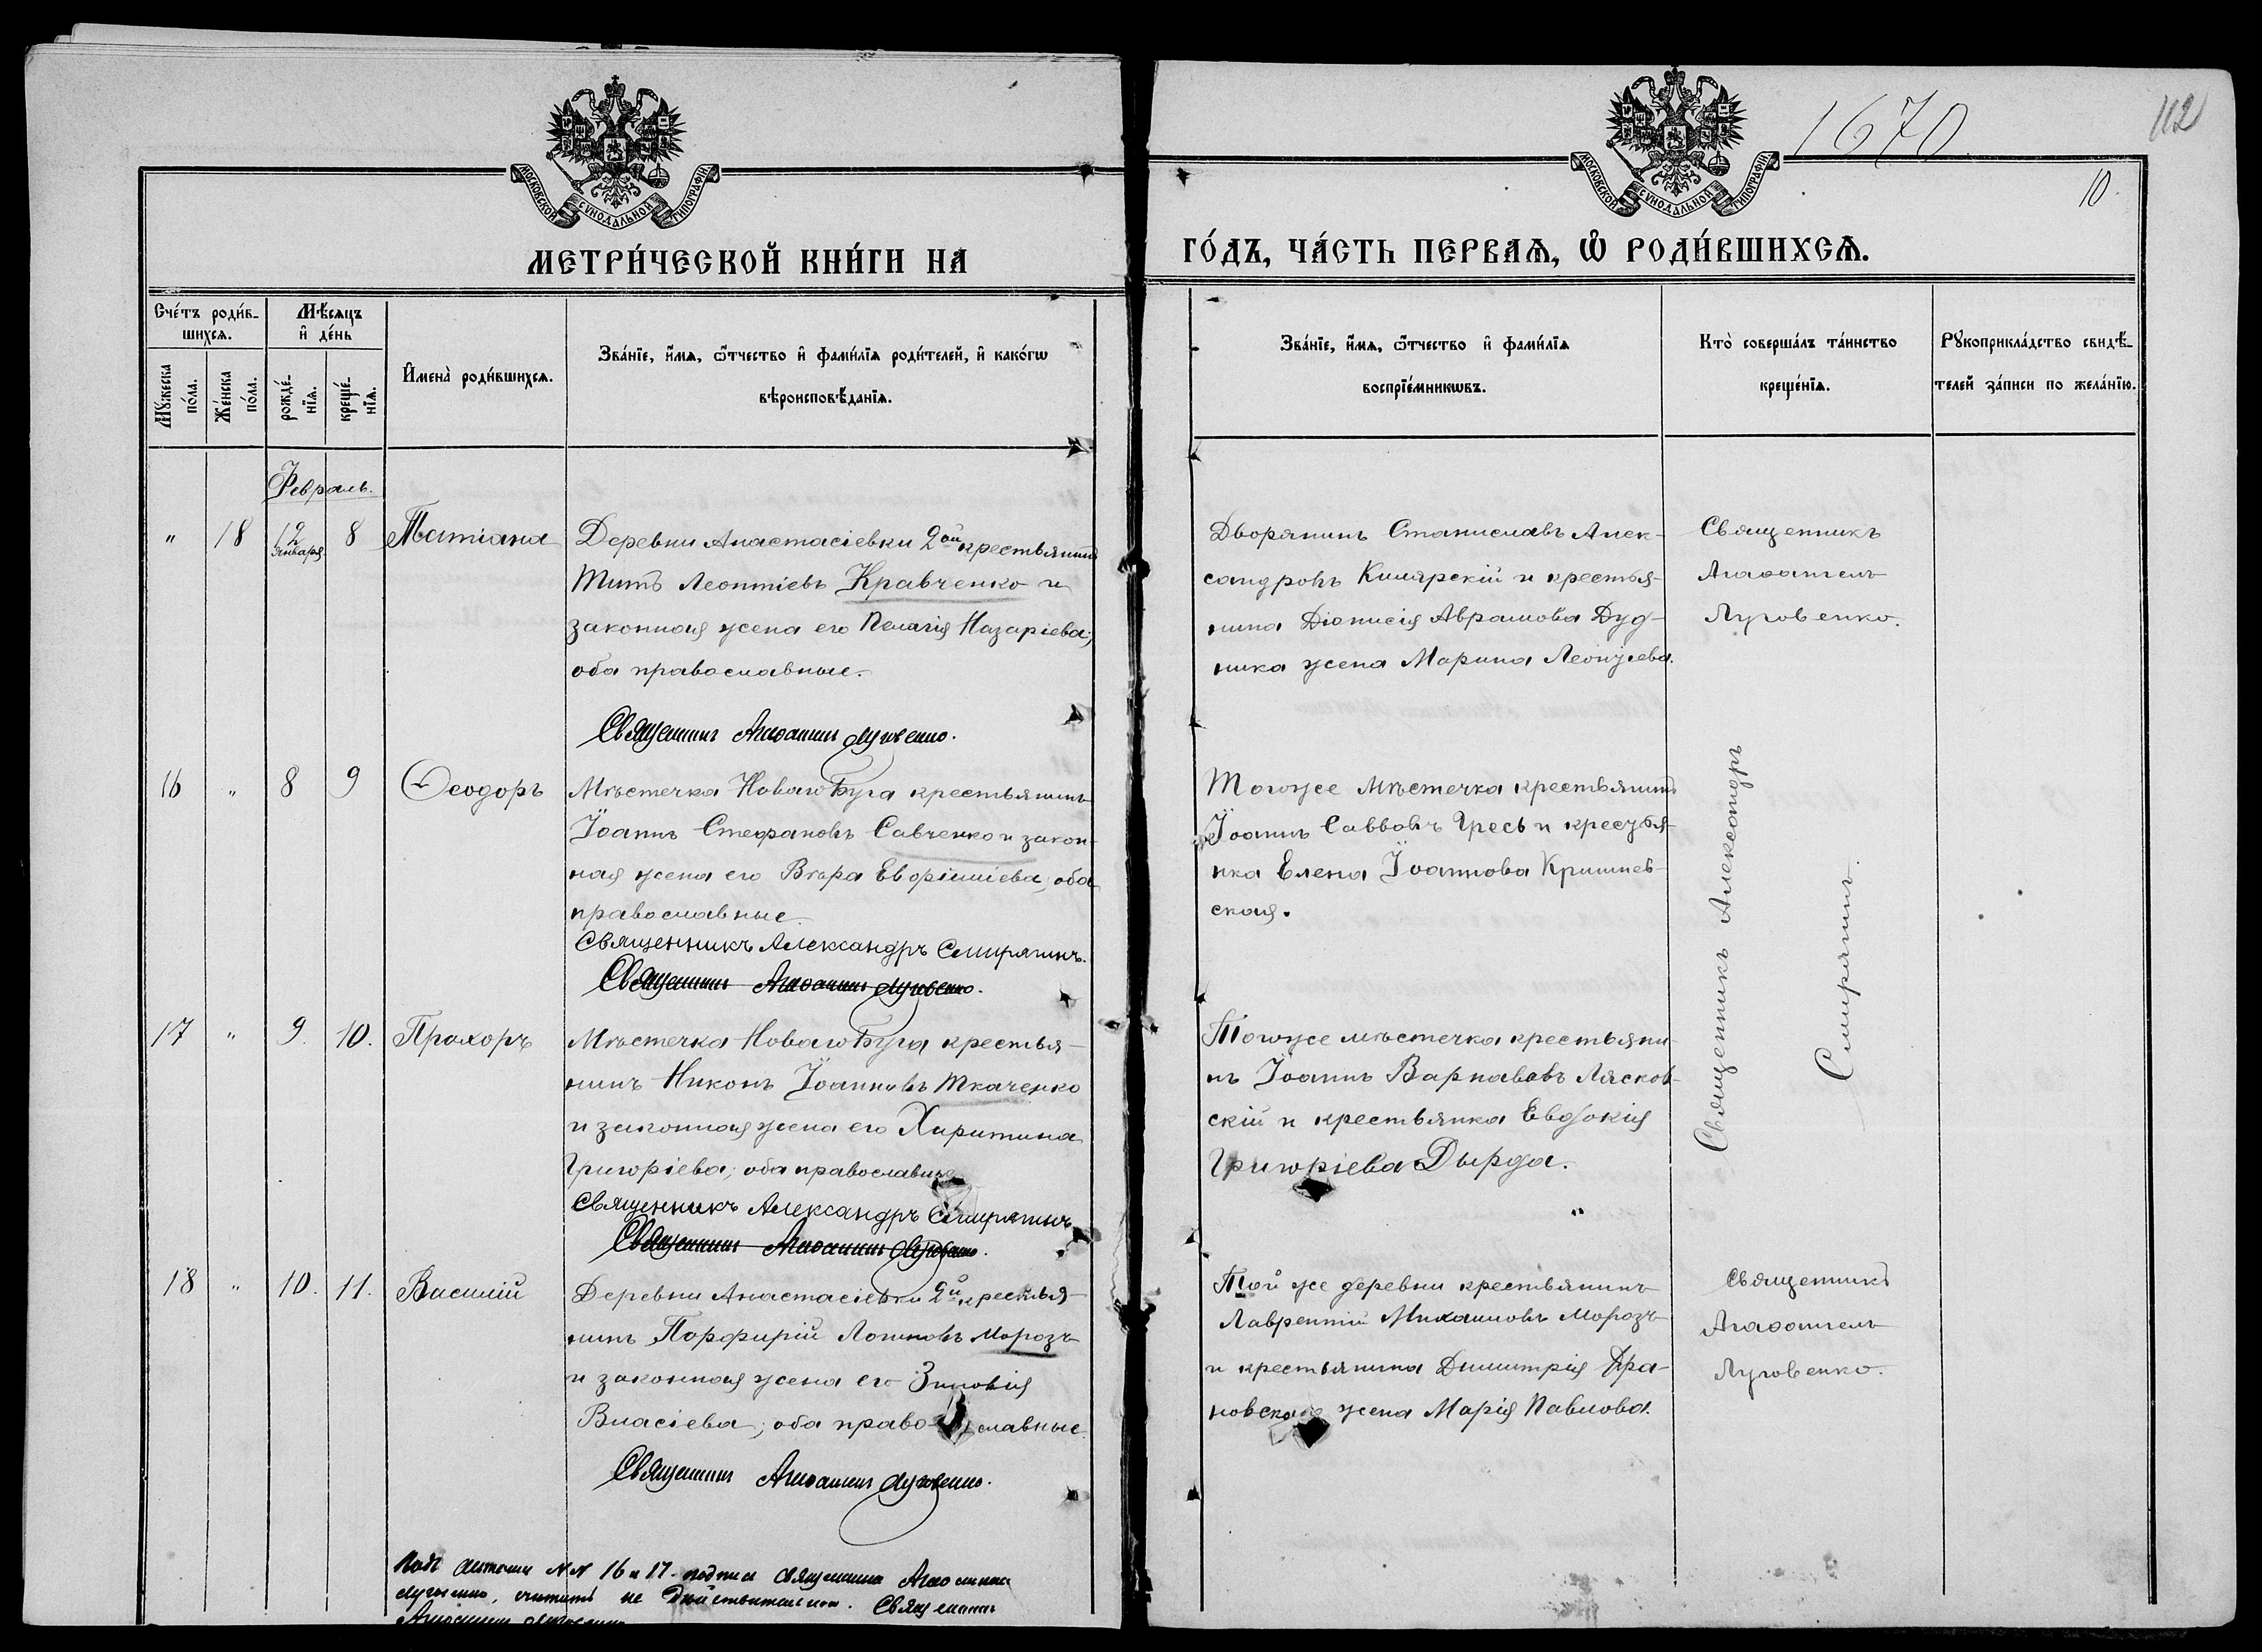 МОСКОВСКОЙ СѴНОДАЛЬНОЙ ТИПОГРАФІИ
МОСКОВСКОЙ СѴНОДАЛЬНОЙ ТИПОГРАФІИ
1670
112
10.
МЕТРИ́ЧЕСКОЙ КНИ́ГИ НА
ГО́ДЪ, ЧА́СТЬ ПЕРВАѦ, Ѡ РОДИ́ВШИХСѦ.
Сче́тъ роди́в-
шихсѧ.
Мѣ́сѧцъ
и҆ де́нь
Мꙋ́жеска
по́ла.
Же́нска
по́ла.
рожде́-
нїѧ.
креще́-
нїѧ.
И҆мена̀ роди́вшихсѧ.
Зва́нїе, и҆́мѧ, ѻ҆́тчество и҆ фами́лїѧ роди́телей, и҆ како́гѡ
вѣроисповѣ́данїѧ.
Зва́нїе, и҆́мѧ, ѻ҆́тчество и҆ фами́лїѧ
воспрїе́мникѡвъ.
Кто̀ соверша́лъ та́инство
креще́нїѧ.
Рꙋкоприкла́дство свидѣ́-
телей за́писи по жела́нїю.
Февраль.
" 18 12 Января 8 Татіана
Деревни Анастасіевки 2ой крестьянинъ
Титъ Леонтіевъ Кравченко и
законная жена его Пелагія Назаріева;
оба православные.
Священникъ Агаѳангелъ Луговенко.
Дворянинъ Станиславъ Алек-
сандровъ и крестья-
нина Діонисія Аврамова Дуд-
ника жена Марина
Священникъ
Агаѳангелъ
Луговенко.
16 " 8 9 Ѳеодоръ
Мѣстечка Новаго Буга крестьянинъ
Іоаннъ Стефановъ Савченко и закон-
ная жена его Вѣра оба
православные
Священникъ Александръ Смирягинъ.
Священникъ Агаѳангелъ Луговенко.
Тогоже мѣстечка крестьянинъ
Іоаннъ Саввовъ Гресь и крестья-
нка Елена Іоаннова Кришнев-
ская.
Священникъ Александръ
Смирягинъ.
17 " 9. 10. Прохоръ
Мѣстечка Новаго Буга крестья-
нинъ Никонъ Іоанновъ Ткаченко
и законная жена его Харитина
Григоріева; оба православные
Священникъ Александръ Смирягинъ
Священникъ Агаѳангелъ Луговенко.
Тогоже мѣстечка крестьяни-
нъ Іоаннъ Варнавовъ Лясков-
скій и крестьянка Евдокія
Григоріева Дырда.
18 " 10. 11. Василій
Деревни Анастасіевки 2й крестья-
нинъ Порфирій Логиновъ Морозъ
и законная жена его Зиновія
Власіева; оба православные
Священникъ Агаѳангелъ Луговенко.
Той же деревни крестьянинъ
Лаврентій Михаиловъ Морозъ
и крестьянина Димитрія
жена Марія Павлова.
Священникъ
Агаѳангелъ
Луговенко.
Подъ актами №№ 16 и 17. подписи священника Агаѳангела
Луговенко, считать не действительною. Священникъ
Агаѳангелъ Луговенко